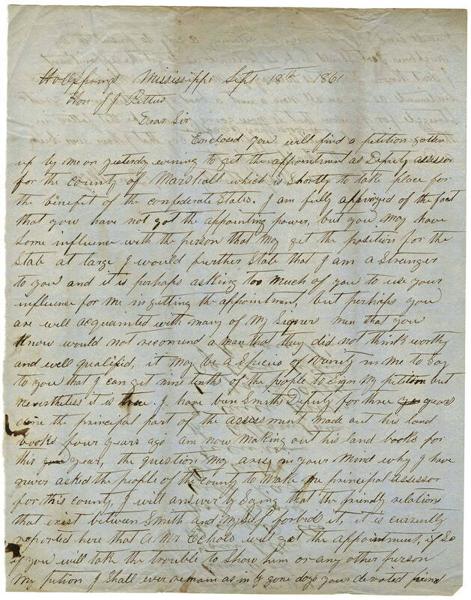 Holly Springs Mississippi Sept 18th 1861
Hon J J Pettus
Dear Sir
Enclosed you will find a petition gotten
up by me on yesterday evening to get the appointment as Deputy assesor
for the County of Marshall which is shortly to take place for
the benefit of the confederate States. I am fully apprised of the fact
that you have not got the appointing power, but you may have
some influence with the person that may get the position for the
State at large I would further State that I am a Stranger
to you and it is perhaps asking too much of you to use your
influence for me in getting the appointment, but perhaps you
are will acquainted with many of my Signers men that you
Know would not recomend a man that they did not think worthy
and will qualified, it may be a Species of Vanity in me to Say
to you that I can get nine tenths of the people to sign my petition but
nevertheless it is true. I have bin Smiths Deputy for three years
done the principal part of the assessment made out his land
books four years ago am now making out his land books for
this year, the question may arise in your mind why I have
never asked the people of the county to make me principal assessor
for this county I will answer by Saying that the friendly relations
that exist between Smith and myself forbid it, it is currently
reported here that a Mr Echols will get the appointment, if So
if you will take the trouble to Show him or any other person
my petition I Shall ever remain as in by gone days your devoted friend